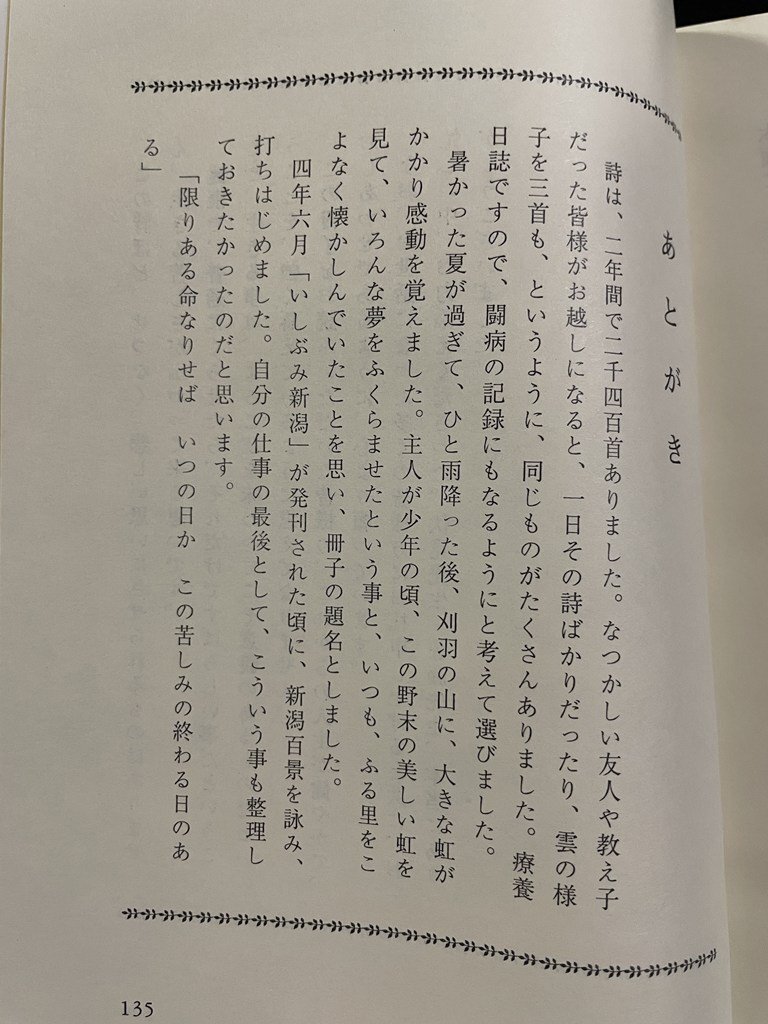 あとがき
詩は、二年間で二千四百首ありました。なつかしい友人や教え子
だった皆様がお越しになると、一日その詩ばかりだったり、雲の様
子を三首も、というように、同じものがたくさんありました。療養
日誌ですので、闘病の記録にもなるようにと考えて選びました。
暑かった夏が過ぎて、ひと雨降った後、刈羽の山に、大きな虹が
かかり感動を覚えました。主人が少年の頃、この野末の美しい虹を
見て、いろんな夢をふくらませたという事と、いつも、ふる里をこ
よなく懐かしんでいたことを思い、冊子の題名としました。
四年六月「いしぶみ新潟」が発刊された頃に、新潟百景を詠み、
打ちはじめました。自分の仕事の最後として、こういう事も整理し
ておきたかったのだと思います。
「限りある命なりせば　いつの日か　この苦しみの終わる日のあ
る」
135